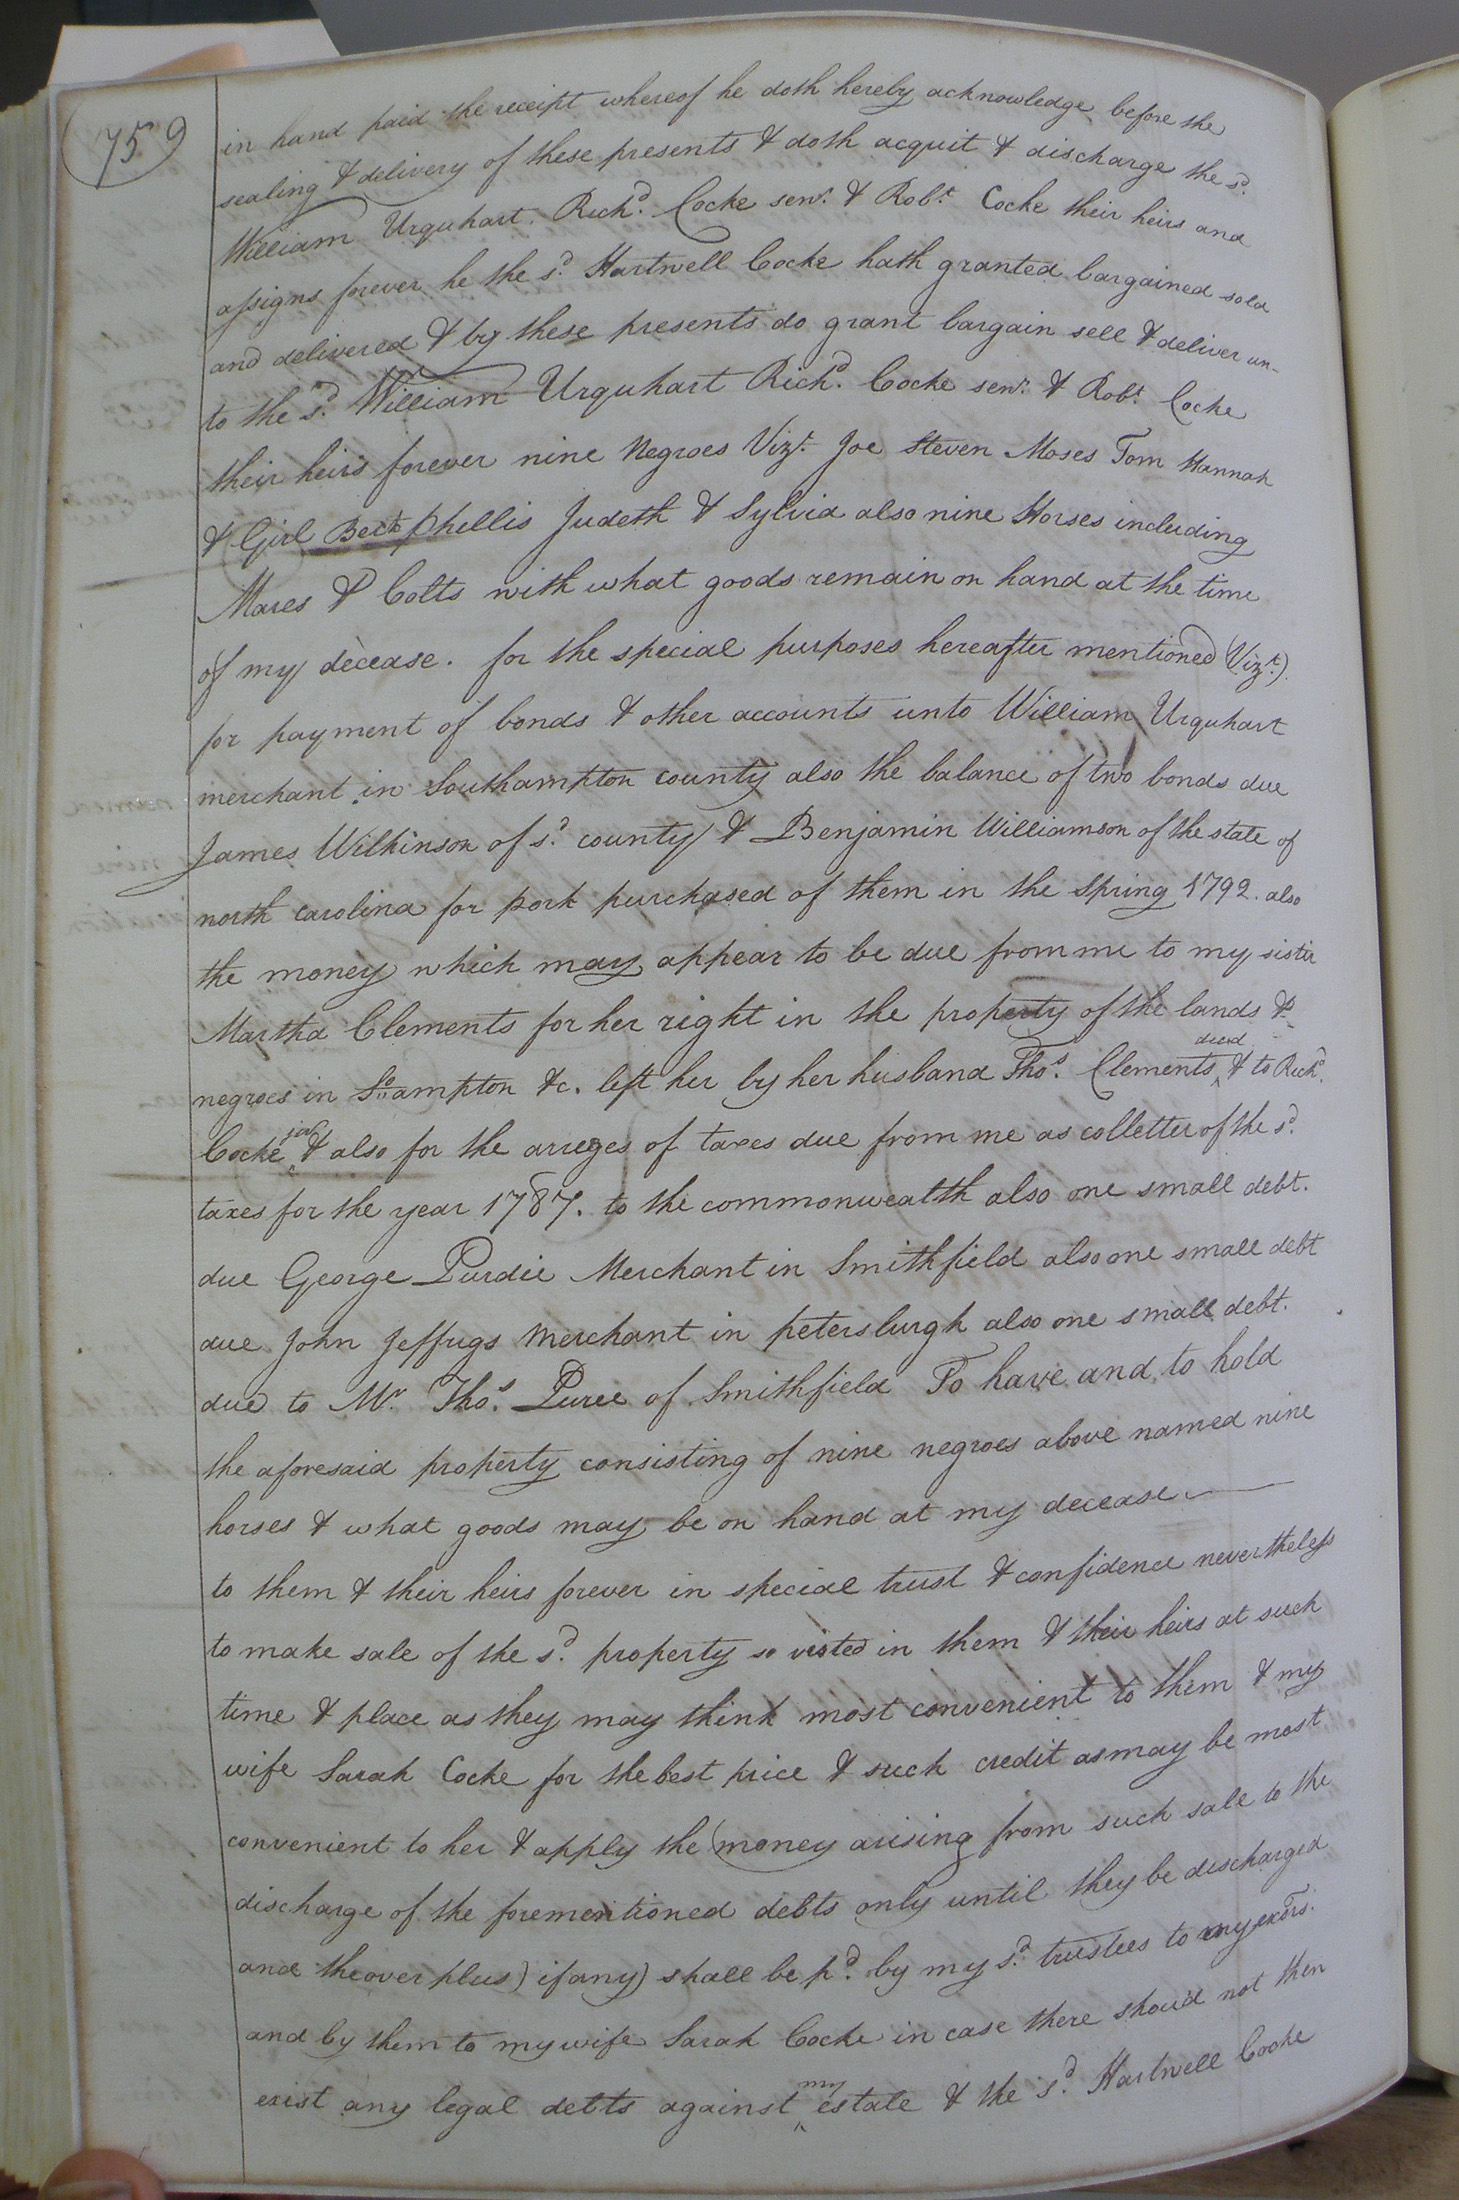 759
in hand paid the receipt whereof he doth hereby acknowledge before the
sealing & delivery of these presents & doth acquit & discharge the sd.
William Urquhart. Richd. Cocke senr. & Robt. Cocke their heirs and
assigns forever he the sd. Hartwell Cocke hath granted bargained sold
and delivered & by these presents do grant bargain sell & deliver un-
to the sd. William Urquhart Richd. Cocke senr. & Robt. Cocke
their heirs forever nine Negroes Vizt. Joe Steven Moses Tom Hannah
& Girl Beck Phillis Judeth & Sylvia also nine Horses including
Mares & Colts with what goods remain on hand at the time
of my decease. for the special purposes hereafter mentioned (Vizt.)
for payment of bonds & other accounts unto William Urquhart
merchant in Southampton county also the balance of two bonds due
James Wilkinson of sd. county & Benjamin Williamson of the state of
north carolina for pork purchased of them in the Spring 1792. also
the money which may appear to be due from me to my sister
Martha Clements for her right in the property of the lands &
negroes in So.ampton &c. left her by her husband Thos. Clements decd & to Richd.
Cocke jor & also for the arreges of taxes due from me as colletter of the sd.
taxes for the year 1787. to the commonwealth also one small debt.
due George Purdie Merchant in Smithfield also one small debt
due John Jeffugs Merchant in petersburgh also one small debt.
due to Mr. Thos. Puree of Smithfield To have and to hold
the aforesaid property consisting of nine negroes above named nine
horses & what goods may be on hand at my decease
to them & their heirs forever in special trust & confidence nevertheless
to make sale of the sd. property so visted in them & their heirs at such
time & place as they may think most convenient to them & my
wife Sarah Cocke for the best price & such credit as may be most
convenient to her & apply the (money arising from such sale to the
discharge of the forementioned debts only until they be discharged
and the over plus) if any) shall be pd. by my sd. trustees to my exors.
and by them to my wife Sarah Cocke in case there shoud not then
exist any legal debts against my estate & the sd. Hartwell Cocke